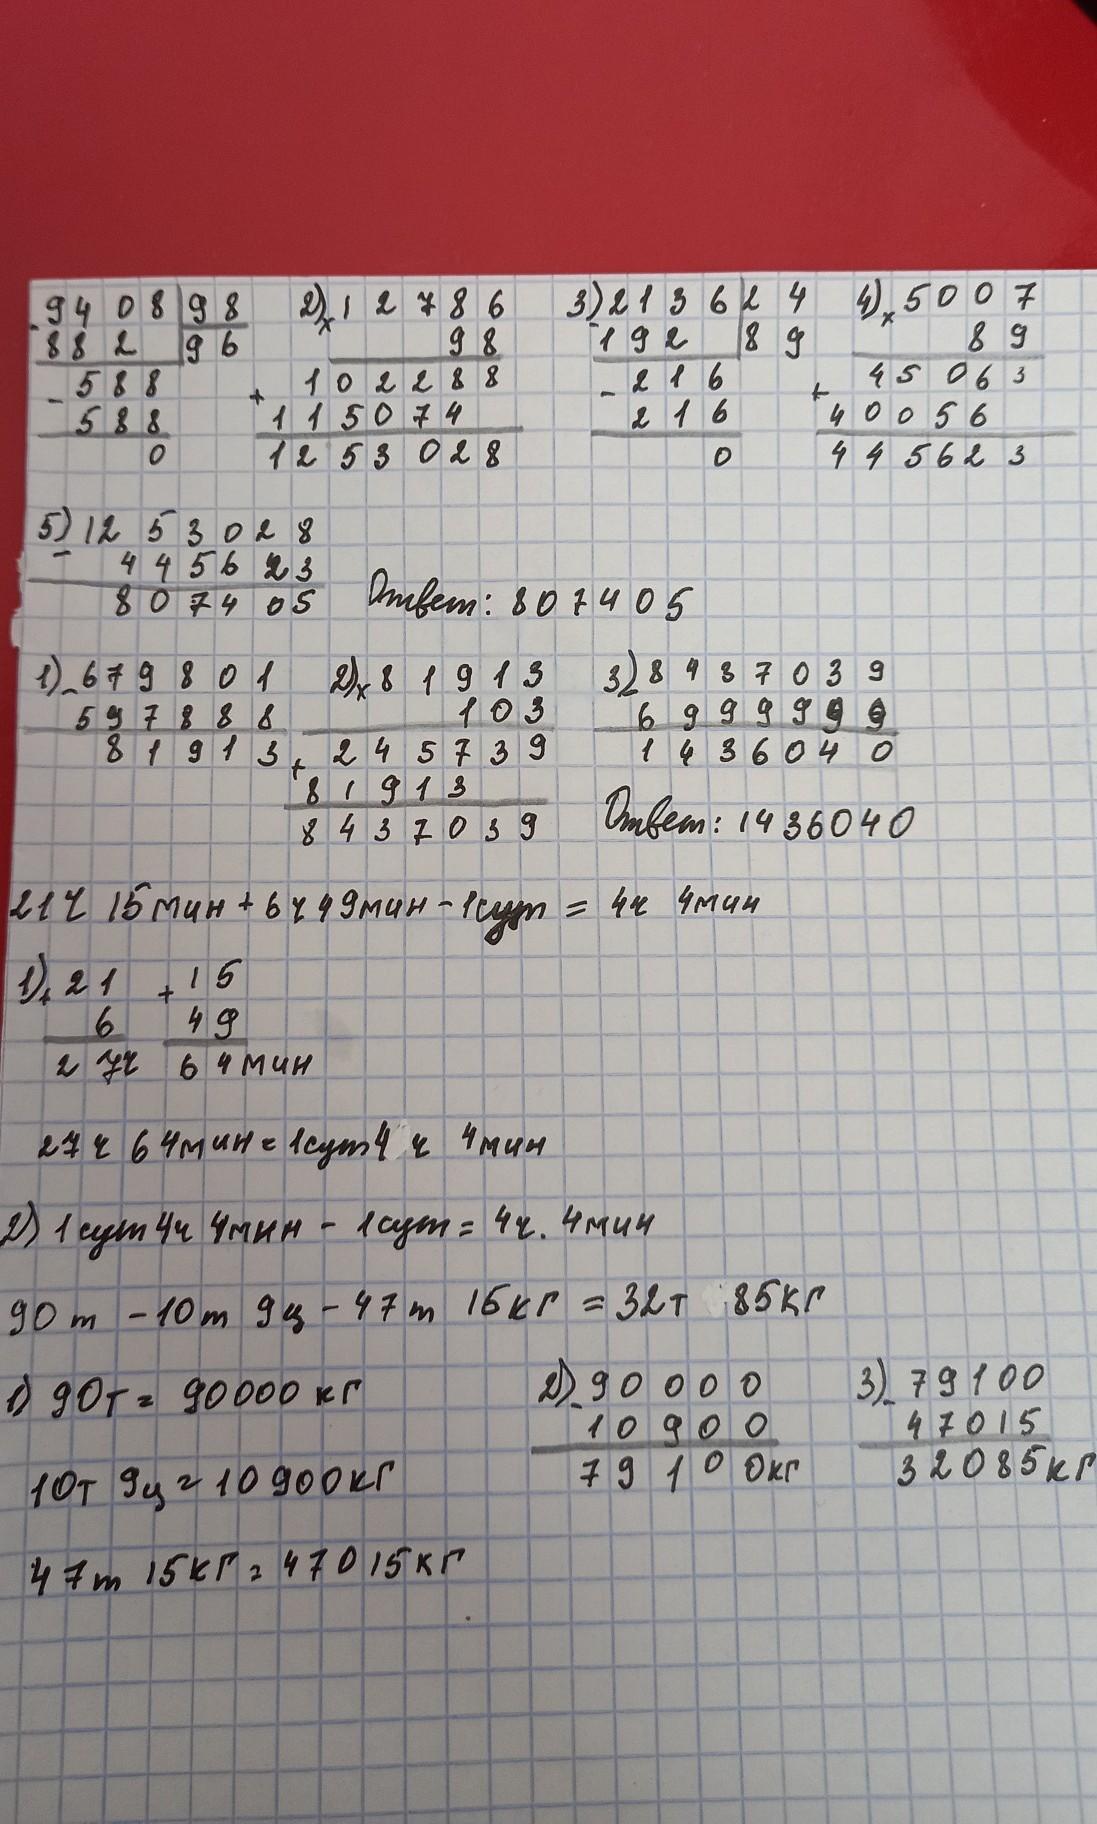 9408 98 2) 12786 3) 2136 24 4) 5007
882 96 98 192 89 89
- 588 102288 - 216 45063
588 + 115074 216 + 40056
0 1253028 0 445623
5) 1253028
- 445623
807405 Ответ: 807405
1) - 679801 2) x 81913 3) 8437039
597888 103 6999999
81913 + 245739 1436040
81913
8437039 Ответ: 1436040
21ч 15мин + 6ч 49мин - 1сут = 4ч 4мин
1) + 21 + 15
6 49
27ч 64мин
27ч 64мин = 1сут 4ч 4мин
2) 1сут 4ч 4мин - 1сут = 4ч. 4мин
90т - 10т 9ц - 47т 15кг = 32т 85кг
1) 90т = 90000кг 2) - 90000 3) - 79100
10900 47015
10т 9ц = 10900кг 79100кг 32085кг
47т 15кг = 47015кг